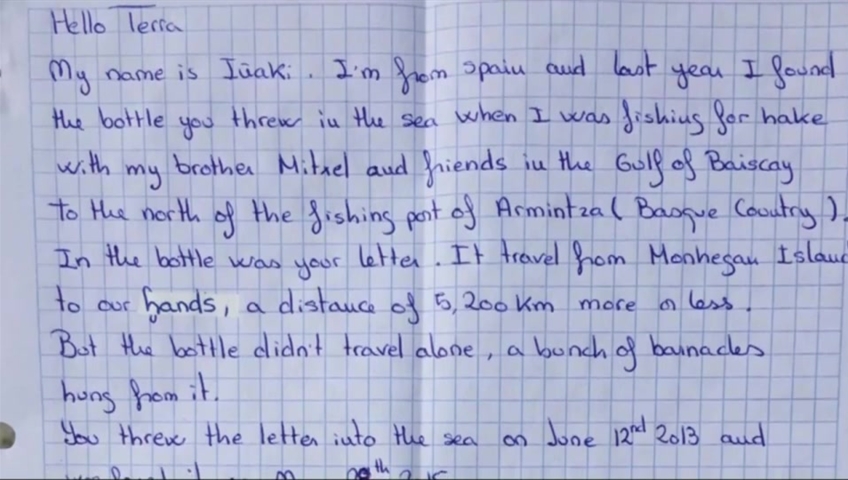 Hello Terra
My name is Iñaki. I'm from spain and last year I found
the bottle you threw in the sea when I was fishing for hake
with my brother Mitxel and friends in the Gulf of Baiscay
to the north of the fishing port of Armintza (Basque Country).
In the bottle was your letter. It travel from Monhegan Island
to our hands, a distance of 5,200 Km more or less.
But the bottle didn't travel alone, a bunch of barnacles
hung from it.
You threw the letter into the sea on June 12nd 2013 and